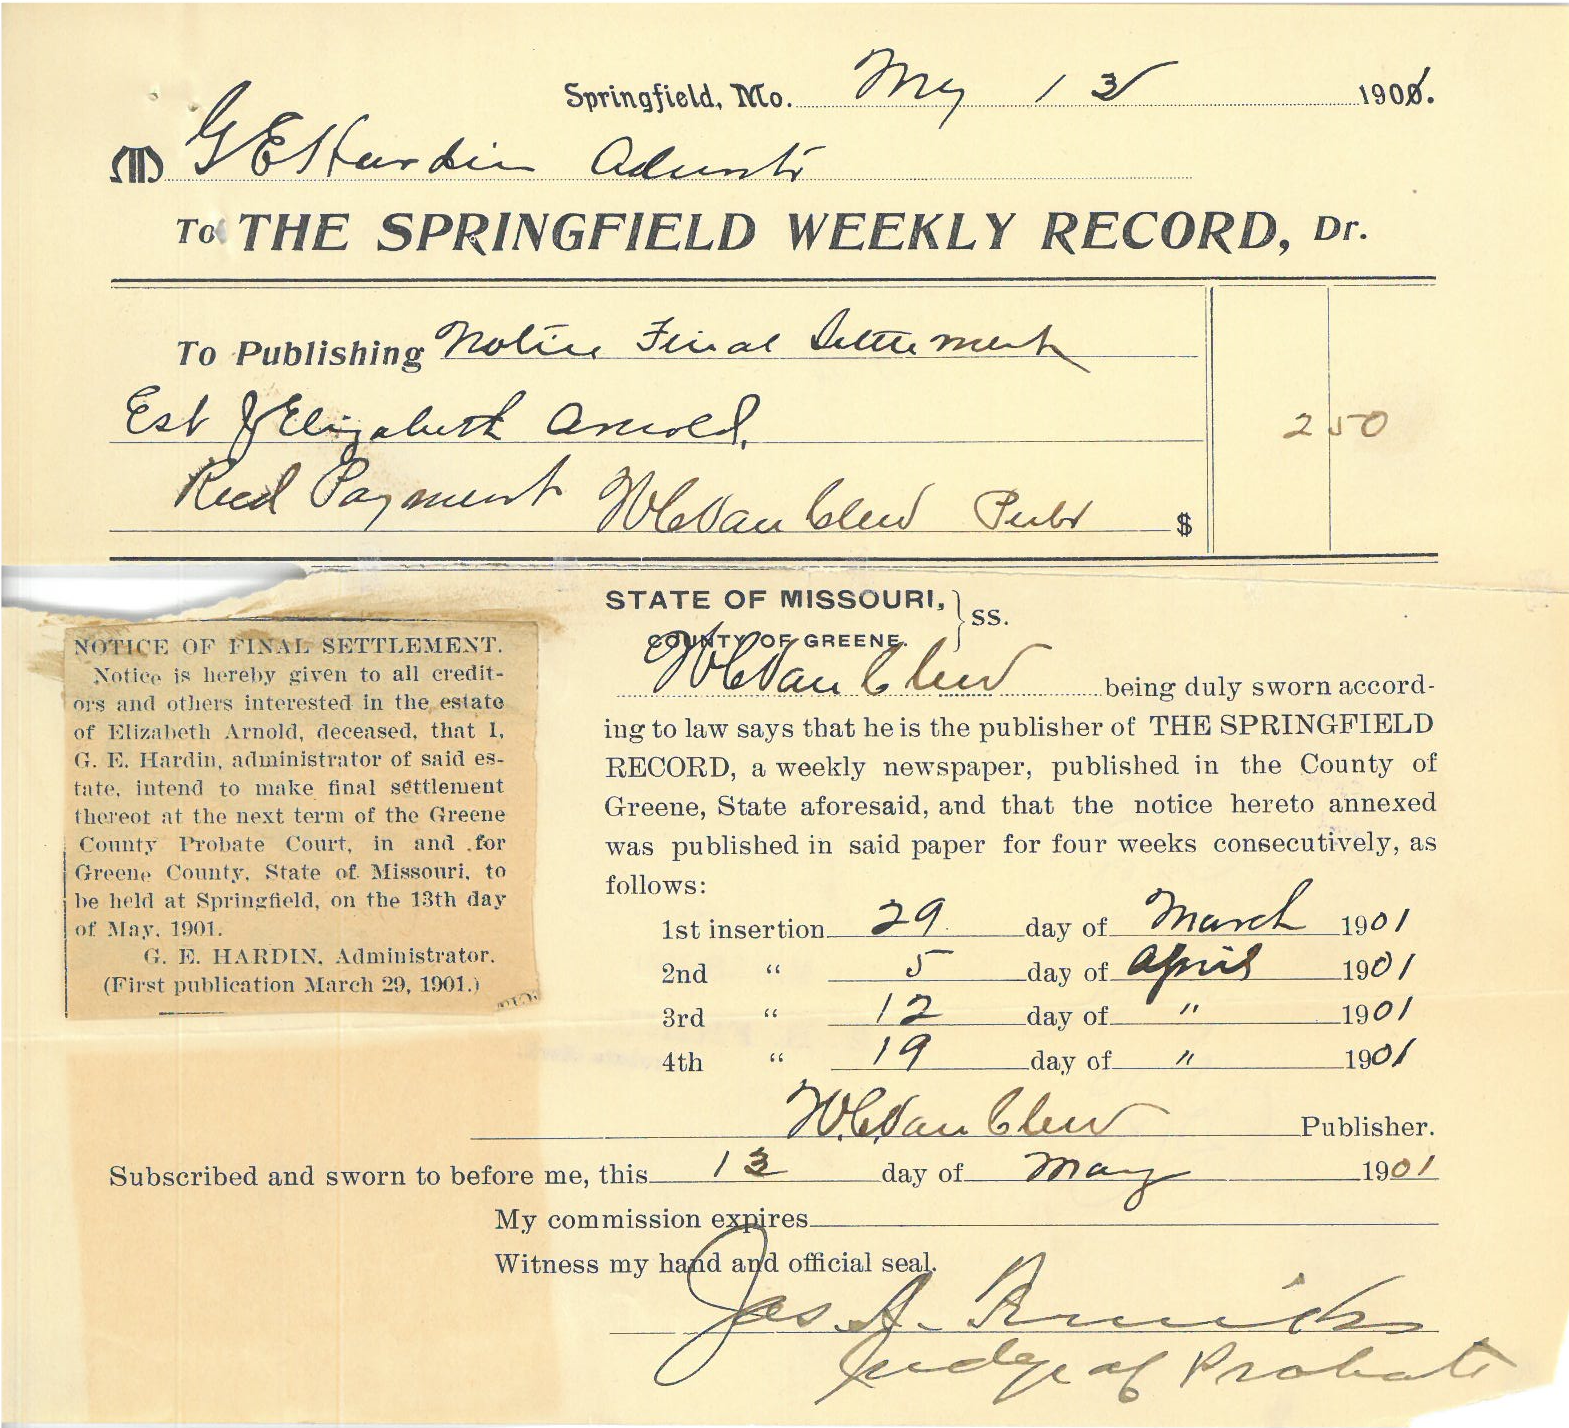 Springfield, Mo. May 13 1901.
M G E Hardin Admstr
To THE SPRINGFIELD WEEKLY RECORD, Dr.
To Publishing Notice Final Settlement
Est of Elizabeth Arnold, 2 50
Recd Payment W C Van Clew Pubr $
NOTICE OF FINAL SETTLEMENT.
Notice is hereby given to all credit-
ors and others interested in the estate
of Elizabeth Arnold, deceased, that I,
G. E. Hardin, administrator of said es-
tate, intend to make final settlement
thereot at the next term of the Greene
County Probate Court, in and for
Greene County, State of Missouri, to
be held at Springfield, on the 13th day
of May, 1901.
G. E. HARDIN, Administrator.
(First publication March 29, 1901.)
STATE OF MISSOURI, } SS.
COUNTY OF GREENE.
W C Van Clew being duly sworn accord-
ing to law says that he is the publisher of THE SPRINGFIELD
RECORD, a weekly newspaper, published in the County of
Greene, State aforesaid, and that the notice hereto annexed
was published in said paper for four weeks consecutively, as
follows:
1st insertion 29 day of March 1901
2nd " 5 day of April 1901
3rd " 12 day of " 1901
4th " 19 day of " 1901
W. C. Van Clew Publisher.
Subscribed and sworn to before me, this 13 day of May 1901
My commission expires
Witness my hand and official seal.
Jas A.
Judge of Probate